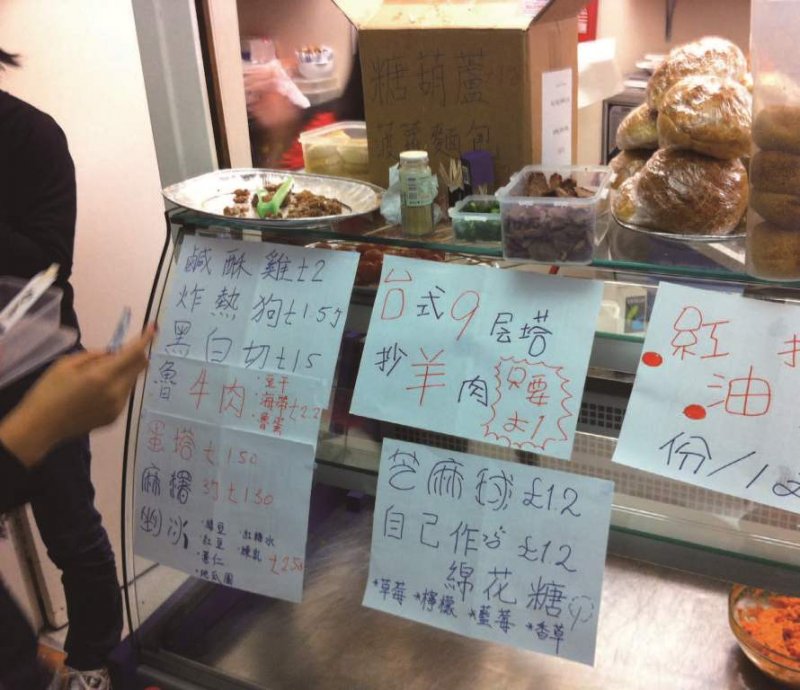 糖葫蘆
菠蘿麵包
鹹酥雞£2
炸熱狗£1.5
黑白切£15
魯牛肉
·豆干
·海帶£2.2
·魯蛋
蛋塔£150
麻糬 £130
剉冰
·綠豆 ·紅糖水
·紅豆 ·煉乳 £250
·薏仁
·地瓜圓
台式9层塔
抄羊肉
只要
£1
紅
油
份/12
芝麻球 £1.2
自己作 £1.2
綿花糖
*草莓 *檸檬 *藍莓 *香草